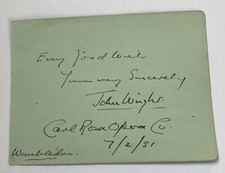 Every Good Wish
Yours very Sincerely
John Wright
Carl Rosa Opera Co.
7/2/31
Wimbledon.